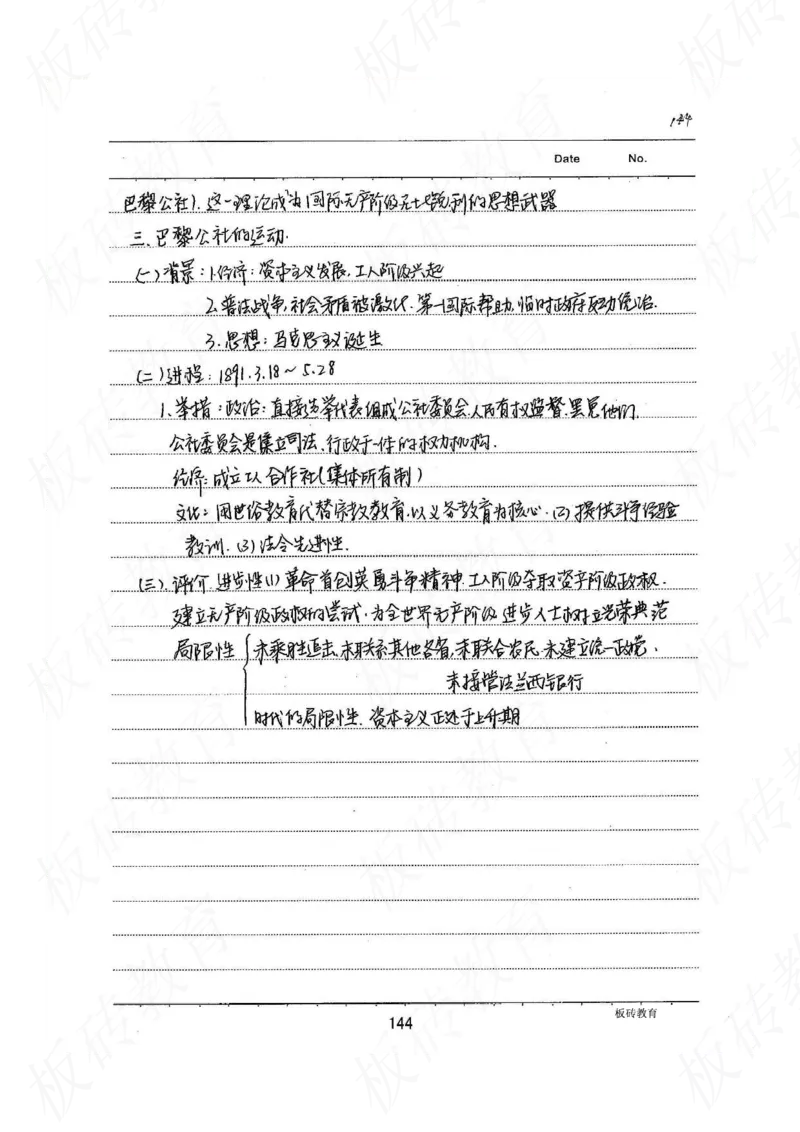 144
Date No.
巴黎公社)。这一理论成为国际无产阶级无比锐利的思想武器
三、巴黎公社的运动.
(一)背景:1.经济:资本主义发展,工人阶级兴起
2.普法战争,社会矛盾被激化.第一国际帮助,临时政府反动统治.
3.思想:马克思主义诞生
(二)进程:1891.3.18~5.28
1.举措:政治:直接选举代表组成公社委员会人民有权监督、罢免他们.
公社委员会是集立司法、行政于一体的权力机构.
经济:成立工人合作社(集体所有制)
文化:用世俗教育代替宗教教育,以义务教育为核心.(2)提供斗争经验
教训.(3)法令先进性.
(三).评价.进步性(1)革命首创英勇斗争精神.工人阶级夺取资产阶级政权.
建立无产阶级政权的尝试.为全世界无产阶级、进步人士树立光荣典范
局限性 未乘胜追击,未联系其他各省,未联合农民.未建立统一政党.
未接管法兰西银行
时代的局限性.资本主义正处于上升期
144
板砖教育
板砖教育